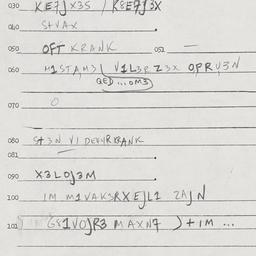 030 KE7JX35 / K8E7J3X
040 StVAX
050 OFT KRANK 051 —
060 M1STAM3( V1L3R Z3X OPRU3N
QED...OM3
070 O
080 St3N VI
081 —
090 X3LOJ3M
100 IM M1VAKSRXEJL1 2AJN
101 G81VOJR3 MAXN7 ) + IM ...